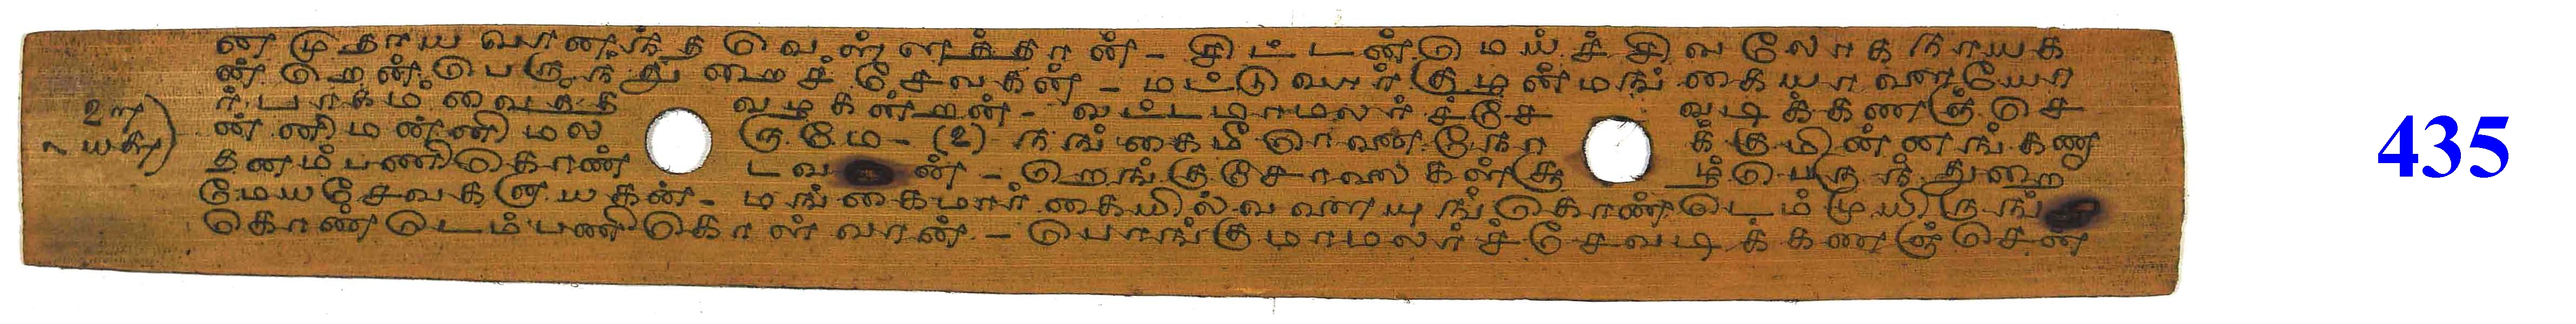 ன முதாய வானந்த வெள்ளத்தான் - சிட்டன் மெய்ச்சிவலோகநாயக
ன் றென்பெருந்துறைச் சேவகன் - மட்டுவார்குழன்மங்கையாளையோ
ர் பாகம் வைத்த வழகன்றன் - வட்டமாமலர்ச்சே வடிக்கணஞ்செ
ன்னிமன்னிமல ருமே - (உ) நங்கைமீரெனை நோ க்குமின்னங்கணா
தனம்பணிகொண் டவன் - றெங்குசோலைகள்சூ ழ்பெருந்துறை
மேயசேவகனாயகன் - மங்கைமார் கையில் வளையுங்கொண்டெம்முயிருங்
கொண்டெம்பணிகொள்வான் - பொங்குமாமலர்ச்சேவடிக்கணஞ்சென்
435